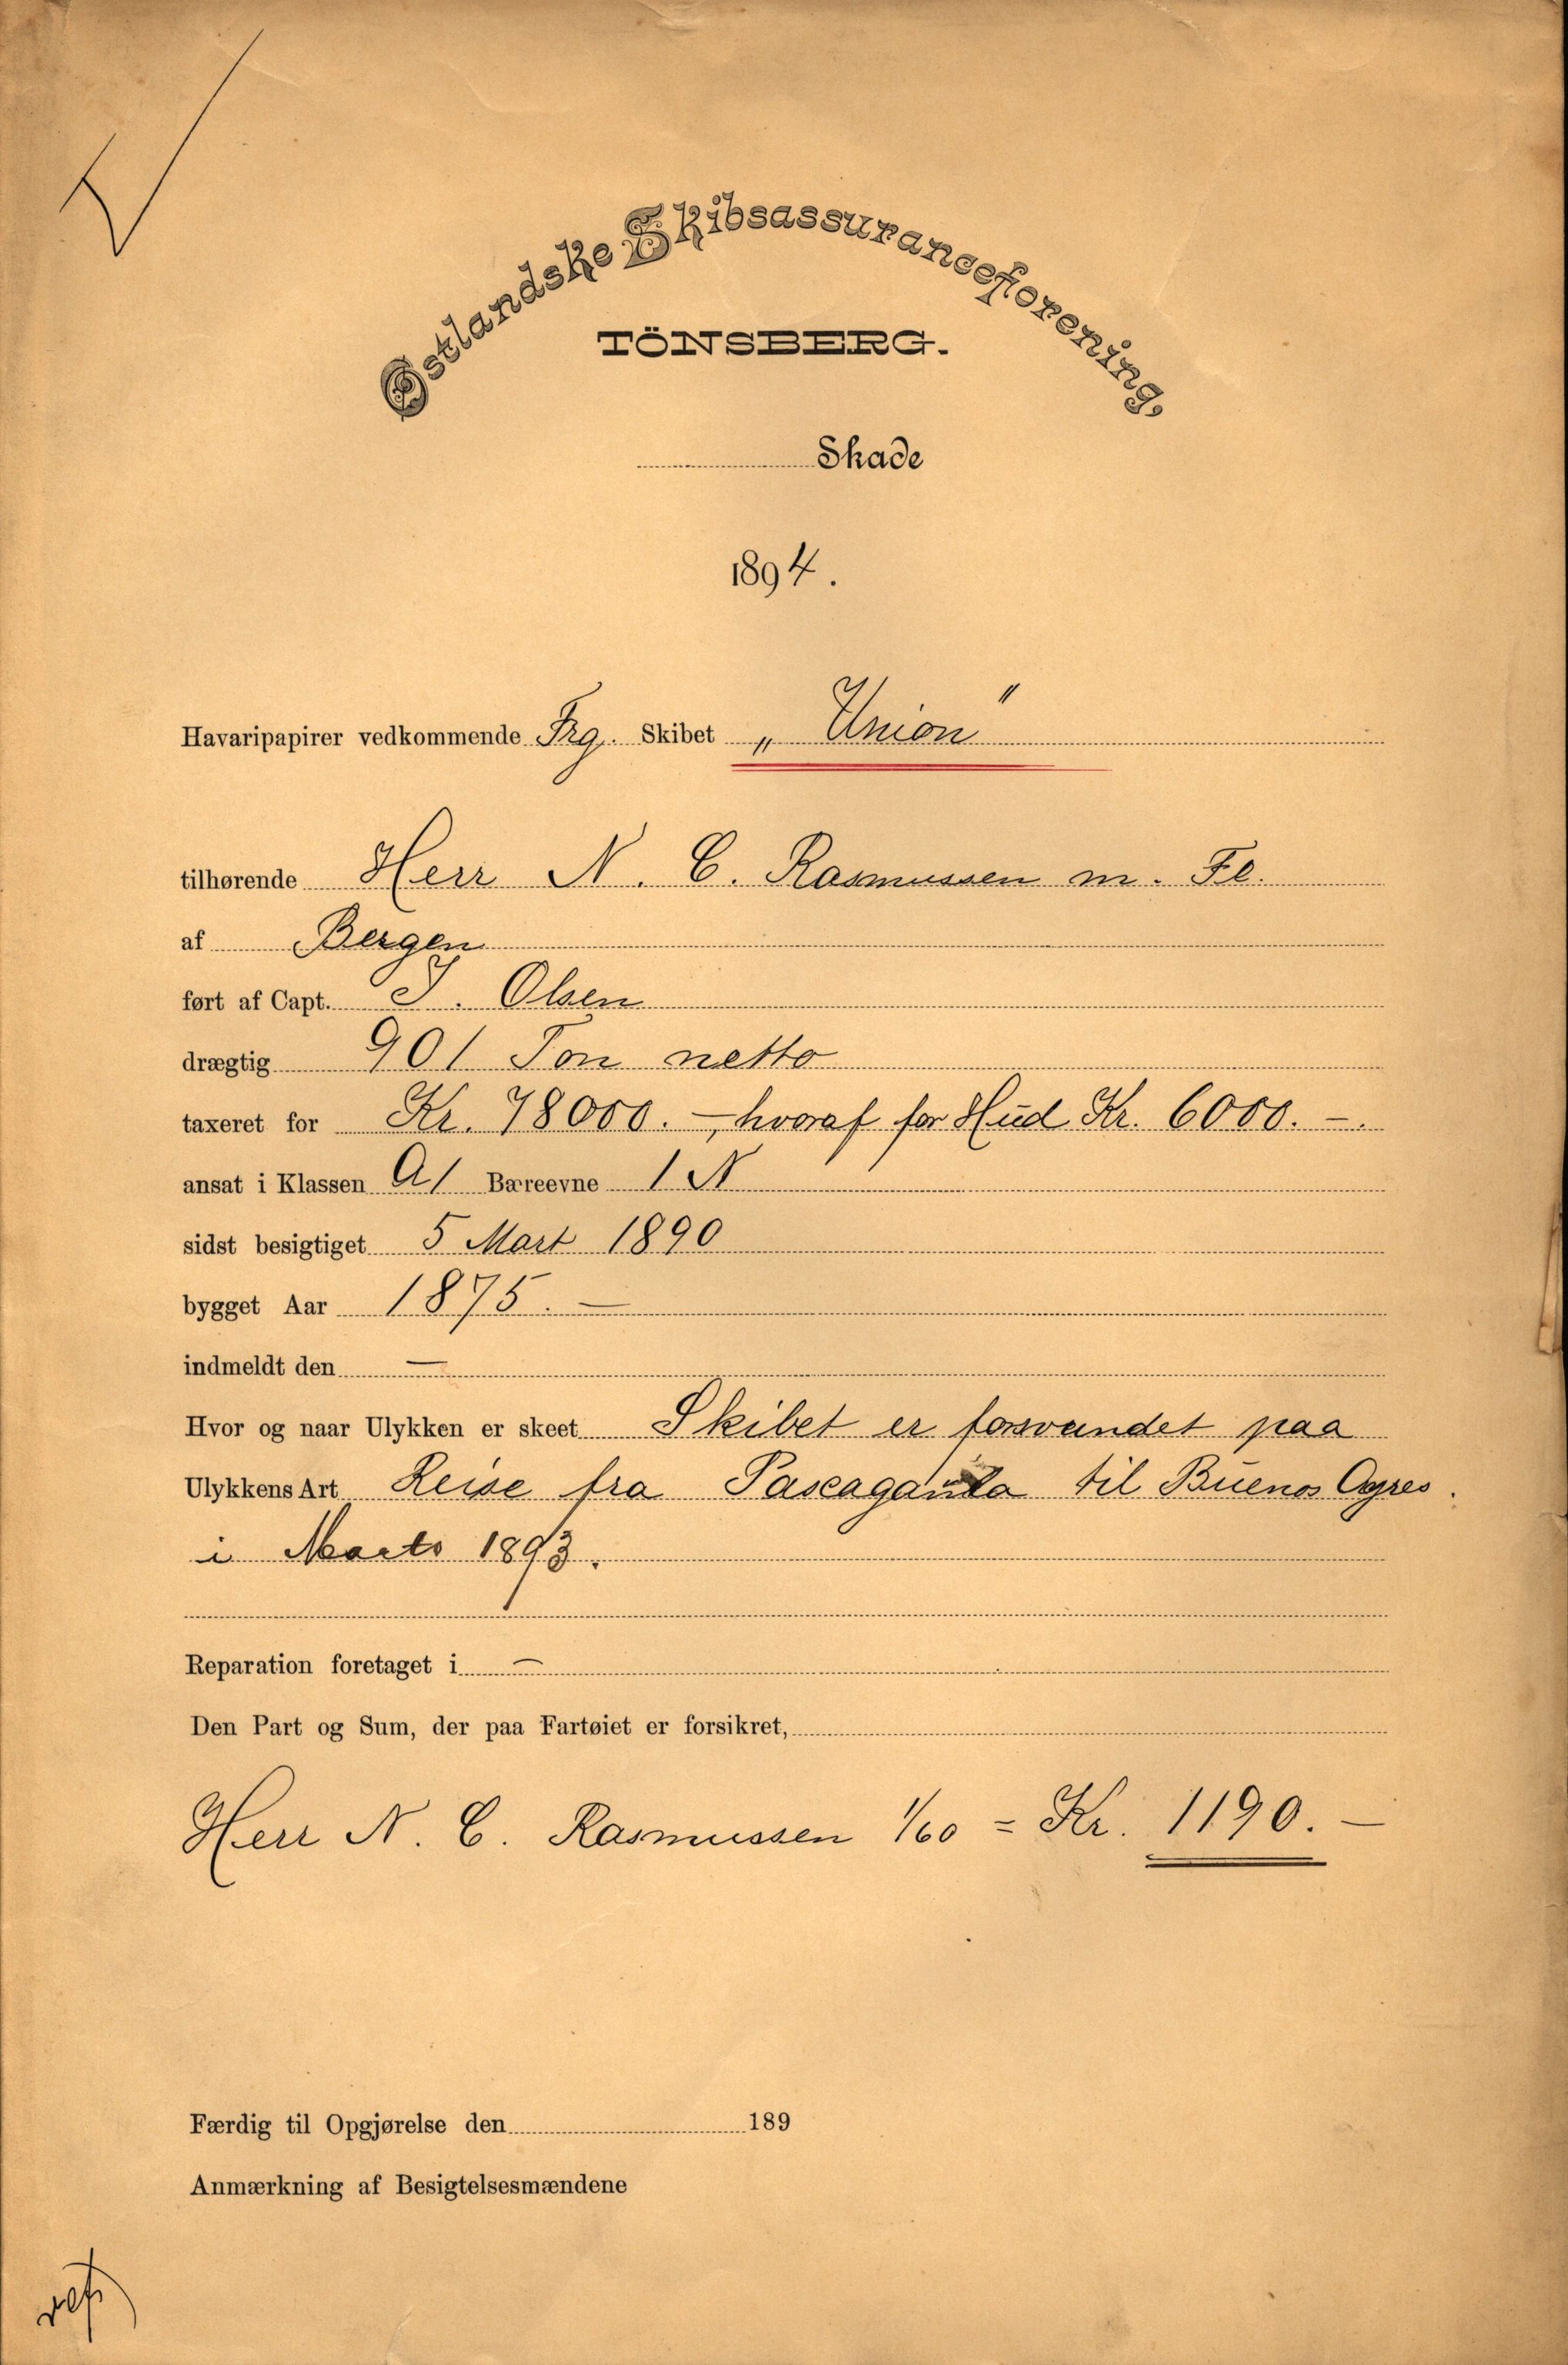 Østlandske Skibsassuranceforening,
TÖNSBERG.
Skade
1894.
Havaripapirer vedkommende Frg. Skibet „Union"
tilhørende Herr N. C. Rasmussen m. Fl.
af Bergen
ført af Capt. J. Olsen
drægtig 901 Ton netto
taxeret for Kr. 78000. —, hvoraf for Hud Kr. 6000. —.
ansat i Klassen A1 Bæreevne 1 N
sidst besigtiget 5 Mart 1890
bygget Aar 1875. —
indmeldt den —
Hvor og naar Ulykken er skeet Skibet er forsvundet paa
Ulykkens Art Reise fra Pascagaula til Buenos Ayres.
i Marts 1893.
Reparation foretaget i —
Den Part og Sum, der paa Fartøiet er forsikret,
Herr N. C. Rasmussen 1/60 = Kr. 1190. —
Færdig til Opgjørelse den 189
Anmærkning af Besigtelsesmændene